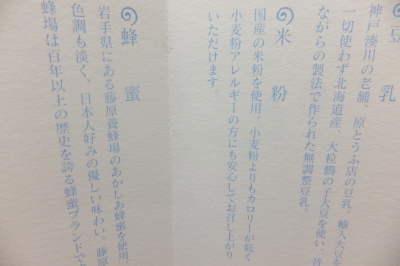 豆乳
神戸湊川の老舗、原とうふ店の豆乳。輸入大豆を
一切使わず北海道産、大粒鶴の子大豆を使い、昔
ながらの製法で作られた無調整豆乳。
米粉
国産の米粉を使用。小麦粉よりもカロリーが低く
小麦粉アレルギーの方にも安心してお召し上がり
いただけます。
蜂蜜
岩手県にある藤原養蜂場のあかしあ蜂蜜を使用。
色調も淡く、日本人好みの優しい味わい。藤原
蜂場は百年以上の歴史を誇る蜂蜜ブランドで